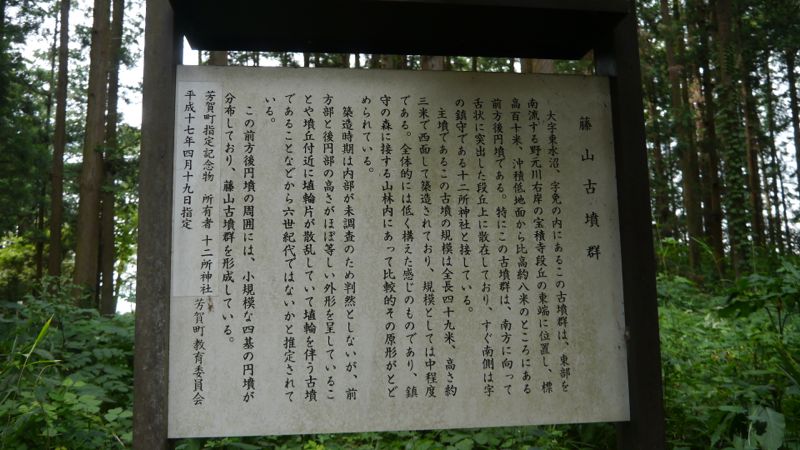 藤山古墳群
大字東水沼、字免の内にあるこの古墳群は、東部を
南流する野元川右岸の宝積寺段丘の東端に位置し、標
高百十米、沖積低地面から比高約八米のところにある
前方後円墳である。特にこの古墳群は、南方に向って
舌状に突出した段丘上に散在しており、すぐ南側は字
の鎮守である十二所神社と接している。
主墳であるこの古墳の規模は全長四十九米、高さ約
三米で西面して築造されており、規模としては中程度
である。全体的には低く構えた感じのものであり、鎮
守の森に接する山林内にあって比較的その原形がとど
められている。
築造時期は内部が未調査のため判然としないが、前
方部と後円部の高さがほぼ等しい外形を呈しているこ
とや墳丘付近に埴輪片が散乱していて埴輪を伴う古墳
であることなどから六世紀代ではないかと推定されて
いる。
この前方後円墳の周囲には、小規模な四基の円墳が
分布しており、藤山古墳群を形成している。
芳賀町指定記念物 所有者 十二所神社 芳賀町教育委員会
平成十七年四月十九日指定